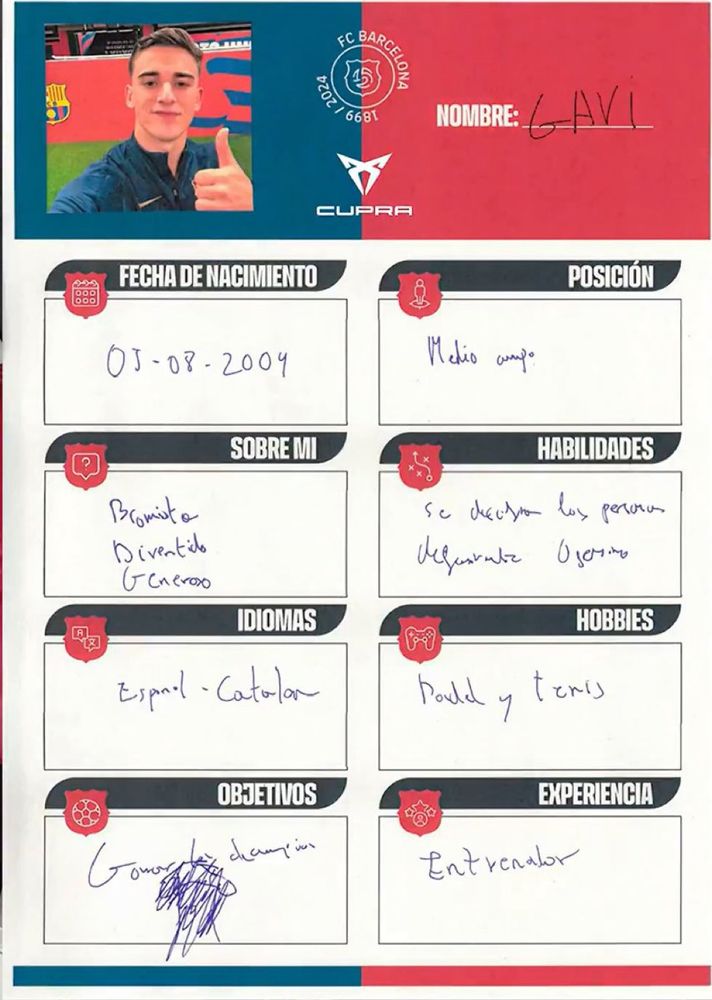 FC BARCELONA
1899 / 2024
NOMBRE: GAVI
CUPRA
FECHA DE NACIMIENTO
05-08-2004
POSICIÓN
Medio campo
SOBRE MI
Bromista
Divertido
Generoso
HABILIDADES
se las personas
IDIOMAS
Español - Catalan
HOBBIES
Padel y tenis
OBJETIVOS
Ganar champions
EXPERIENCIA
Entrenador